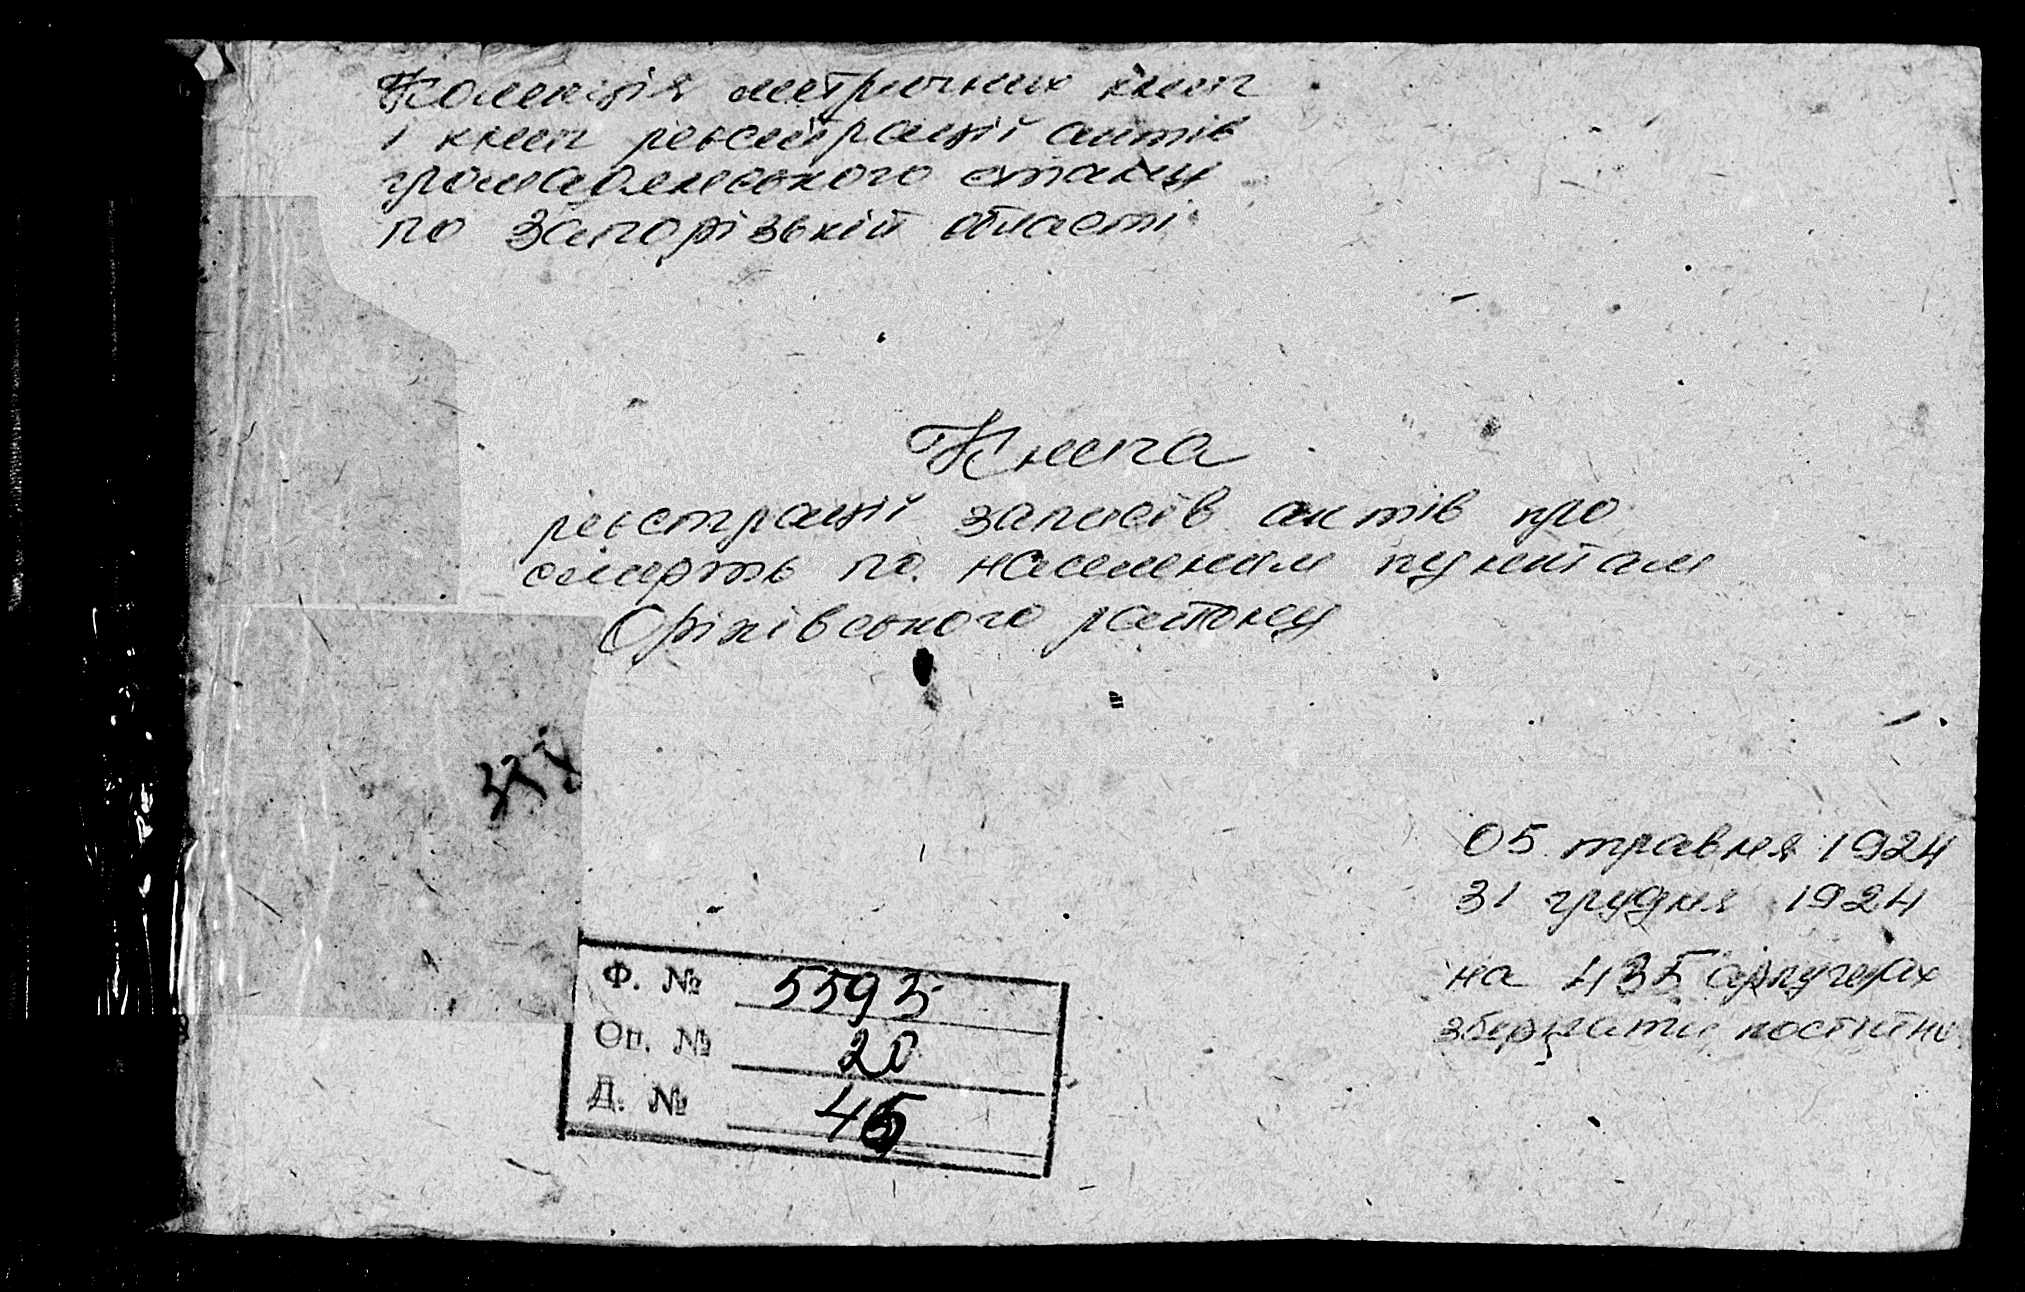 Колекція метричних книг
і книг реєстрації актів
громадянського стану
по Запорізькій області
Книга
реєстрації записів актів про
смерть по населеним пунктам
Оріхівського району
05 травня 1924
31 грудня 1924
на 435 аркушах
зберігати постійно
Ф. № 5593
Оп. № 20
Д. № 45